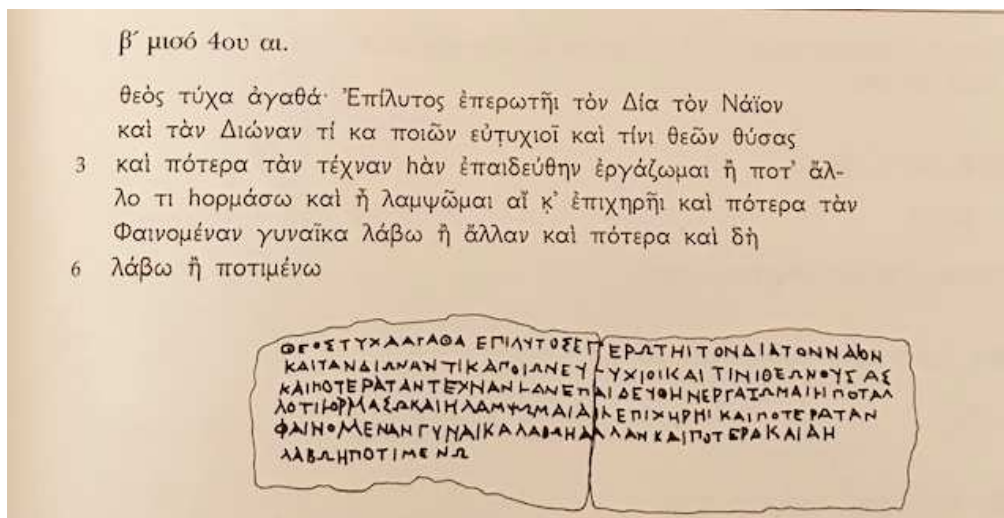 β´ μισό 4ου αι.
θεὸς τύχα ἀγαθά· Ἐπίλυτος ἐπερωτῆι τὸν Δία τὸν Νάϊον
καὶ τὰν Διώναν τί κα ποιῶν εὐτ̣υχιοῖ καὶ τίνι θεῶν θύσας
3 καὶ πότερα τὰν τέχναν hὰν ἐπαιδεύθην ἐργάζωμαι ἢ ποτ’ ἄλ-
λο τι hορμάσω καὶ ἦ λαμψῶμαι αἴ κ̣’ ἐπιχηρῆι καὶ πότερα τὰν
Φαινομέναν γυναῖκα λάβω ἢ ἄλλαν καὶ πότερα καὶ δὴ
6 λάβω ἢ ποτιμένω
ΘΕΟΣΤΥΧΑΑΓΑΘΑ ΕΠΙΛΥΤΟΣΕΠΕΡΩΤΗΙΤΟΝΔΙΑΤΟΝΝΑΙΟΝ
ΚΑΙΤΑΝΔΙΩΝΑΝΤΙΚΑΠΟΙΩΝΕΥ-ΥΧΙΟΙΚΑΙ ΤΙΝΙΘΕΩΝΘΥΣΑΣ
ΚΑΙΠΟΤΕΡΑΤΑΝΤΕΧΝΑΝ├ΑΝΕΠΑΙΔΕΥΘΗΝΕΡΓΑΖΩΜΑΙΗΠΟΤΑΛ
ΛΟΤΙ├ΟΡΜΑΣΩΚΑΙΗΛΑΜΨΩΜΑΙΑΙΚΕΠΙΧΗΡΗΙ ΚΑΙΠΟΤΕΡΑΤΑΝ
ΦΑΙΝΟΜΕΝΑΝΓΥΝΑΙΚΑΛΑΒΩΗΑΛΛΑΝΚΑΙΠΟΤΕΡΑΚΑΙΔΗ
ΛΑΒΩΗΠΟΤΙΜΕΝΩ